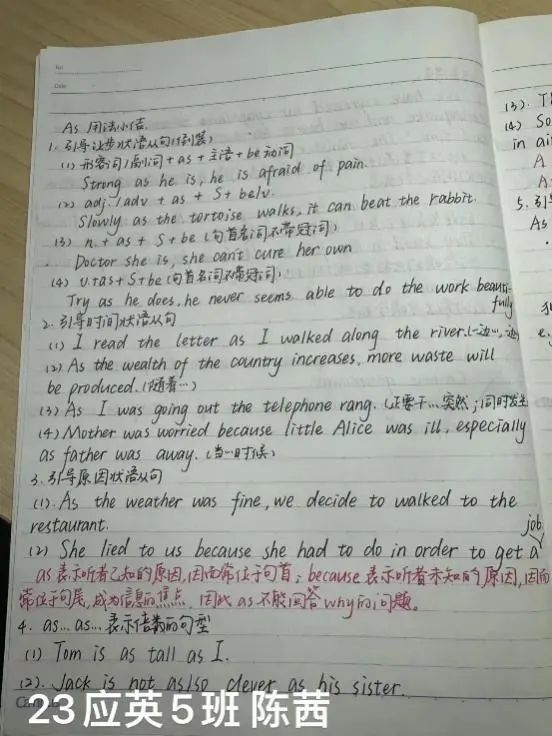 No.
Date
As 用法小结
1. 引导让步状语从句(倒装)
(1) 形容词/副词 + as + 主语 + be动词
Strong as he is, he is afraid of pain.
(2) adj./adv + as + S + be/v.
Slowly as the tortoise walks, it can beat the rabbit.
(3) n. + as + S + be (句首名词不带冠词)
Doctor she is, she can't cure her own
(4) v.+as+S+be(句首名词不带冠词)
Try as he does, he never seems able to do the work beauti-
fully
2. 引导时间状语从句
(1) I read the letter as I walked along the river.(一边…,一边)
(2) As the wealth of the country increases, more waste will
be produced.(随着…)
(3) As I was going out the telephone rang. (正要干…突然;同时发生
(4) Mother was worried because little Alice was ill, especially
as father was away. (当…时候)
3. 引导原因状语从句
(1). As the weather was fine, we decide to walked to the
restaurant.
job
(2) She lied to us because she had to do in order to get a
as 表示听者已知的原因,因而常位于句首; because 表示听者未知的原因,因而
常位于句尾,成为信息的焦点. 因此 as 不能回答 why 的问题。
4. as... as... 表示倍数的句型
(1) Tom is as tall as I.
(2). Jack is not as/so clever as his sister.
(3). T
(4) So
in ai
A
A
5. 引
As
e
Camp
23应英5班 陈茜